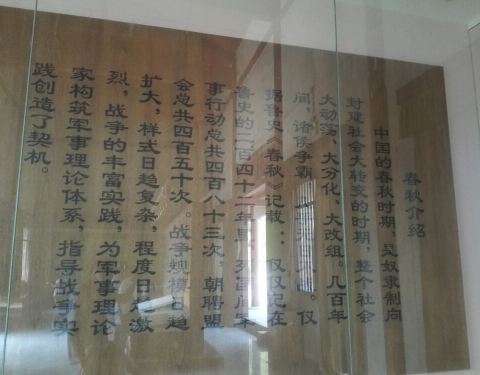 春秋介绍
中国的春秋时期，是奴隶制向
封建社会大转变的时期，整个社会
大动荡、大分化、大改组。几百年
间，诸侯争霸，仅
据鲁史《春秋》记载：仅仅记在
鲁史的二百四十二年里，列国间军
事行动总共四百八十三次，朝聘盟
会总共四百五十次。战争规模日趋
扩大，样式日趋复杂，程度日趋激
烈，战争的丰富实践，为军事理论
家构筑军事理论体系，指导战争实
践创造了契机。